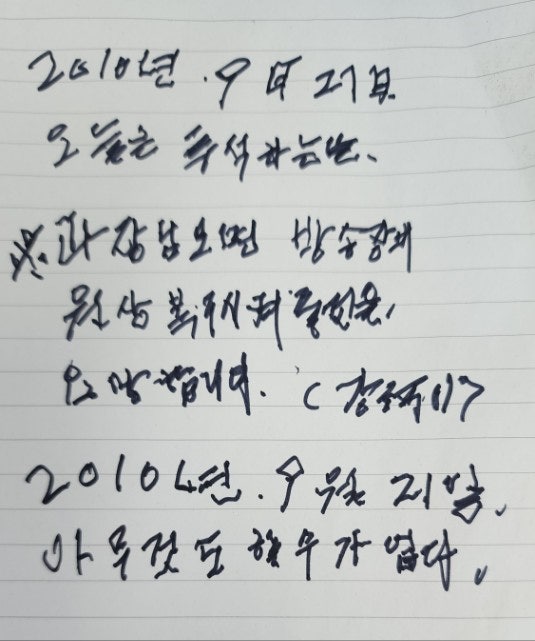 2010년. 9月 27日
오늘은 추석하는날.
※ 과장님오면 방송장비
원상 복구시켜 줄것을,
요망합니다. (강
2010년. 9월 21일,
아무것도 할수가 없다,